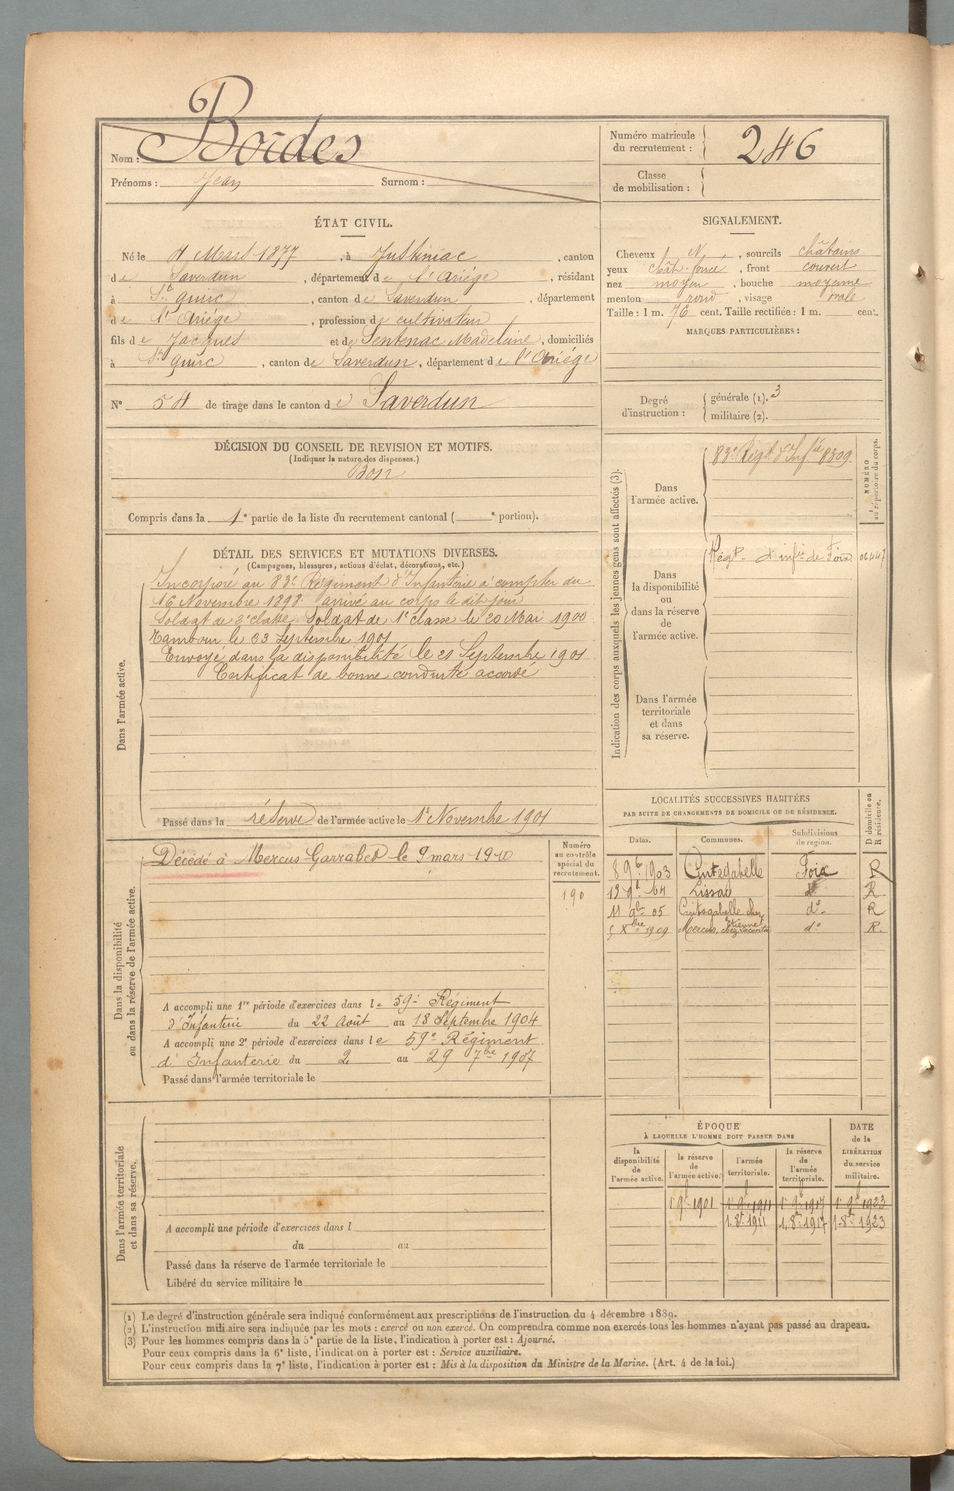 Nom : Bordes
Prénoms : Jean Surnom :
Numéro matricule
du recrutement : 246
Classe
de mobilisation :
ÉTAT CIVIL.
Né le 4 Mars 1877, à Justiniac, canton
de Saverdun, département de l'Ariége, résidant
à St Quirc, canton de Saverdun, département
de l'Ariége, profession de cultivateur
fils de Jacques et de Sentenac Madelaine, domiciliés
à St Quirc, canton de Saverdun, département de l'Ariége
N° 54 de tirage dans le canton de Saverdun
SIGNALEMENT.
Cheveux N, sourcils châtains
yeux chât. foncé, front couvert
nez moyen, bouche moyenne
menton rond, visage ovale
Taille : 1 m. 76 cent. Taille rectifiée : 1 m. cent.
MARQUES PARTICULIÈRES :
Degré
d'instruction :
générale (1). 3
militaire (2).
DÉCISION DU CONSEIL DE REVISION ET MOTIFS.
(Indiquer la nature des dispenses.)
Bon
Compris dans la 1e partie de la liste du recrutement cantonal ( e portion).
DÉTAIL DES SERVICES ET MUTATIONS DIVERSES.
(Campagnes, blessures, actions d'éclat, décorations, etc.)
Dans l'armée active.
Incorporé au 83e Régiment d'Infanterie à compter du
16 Novembre 1898 arrivé au corps le dit jour
Soldat de 2e classe. Soldat de 1e classe le 20 Mai 1900
Tambour le 03 Septembre 1901
Envoyé dans la disponibilité le 21 Septembre 1901
Certificat de bonne conduite accordé
Passé dans la réserve de l'armée active le 1er Novembre 1901
Indication des corps auxquels les jeunes gens sont affectés (3).
NUMÉRO
au répertoire du corps.
Dans
l'armée active.
83e Régt d'Infie 8309
Dans
la disponibilité
ou
dans la réserve
de
l'armée active.
Régt d'infie de Foix
Dans l'armée
territoriale
et dans
sa réserve.
LOCALITÉS SUCCESSIVES HABITÉES
PAR SUITE DE CHANGEMENTS DE DOMICILE OU DE RÉSIDENCE.
Dates. Communes. Subdivisions
de région.
D domicile ou
R résidence.
8 9bre 1903 Cintegabelle Foix R
Lissac do R
05 Cintegabelle chez do R
Xbre 1909 Mercus, Etienne do R.
Dans la disponibilité
ou dans la réserve de l'armée active.
Numéro
au contrôle
spécial du
recrutement.
190
Décédé à Mercus-Garrabet le 9 mars 1910
A accompli une 1re période d'exercices dans le 59e Régiment
d'Infanterie du 22 Août au 18 Septembre 1904
A accompli une 2e période d'exercices dans le 59e Régiment
d'Infanterie du 2 au 29 7bre 1907
Passé dans l'armée territoriale le
Dans l'armée territoriale
et dans sa réserve.
A accompli une période d'exercices dans l
du au
Passé dans la réserve de l'armée territoriale le
Libéré du service militaire le
ÉPOQUE
À LAQUELLE L'HOMME DOIT PASSER DANS
la
disponibilité
de
l'armée active.
la réserve
de
l'armée active.
l'armée
territoriale.
la réserve
de
l'armée
territoriale.
DATE
de la
LIBÉRATION
du service
militaire.
1 9bre 1901 1 9bre 1911 1 9bre 1917 1 9bre 1923
1 8bre 1911 1 8bre 1917 1 8bre 1923
(1) Le degré d'instruction générale sera indiqué conformément aux prescriptions de l'instruction du 4 décembre 1889.
(2) L'instruction militaire sera indiquée par les mots : exercé ou non exercé. On comprendra comme non exercés tous les hommes n'ayant pas passé au drapeau.
(3) Pour les hommes compris dans la 5e partie de la liste, l'indication à porter est : Ajourné.
Pour ceux compris dans la 6e liste, l'indication à porter est : Service auxiliaire.
Pour ceux compris dans la 7e liste, l'indication à porter est : Mis à la disposition du Ministre de la Marine. (Art. 4 de la loi.)